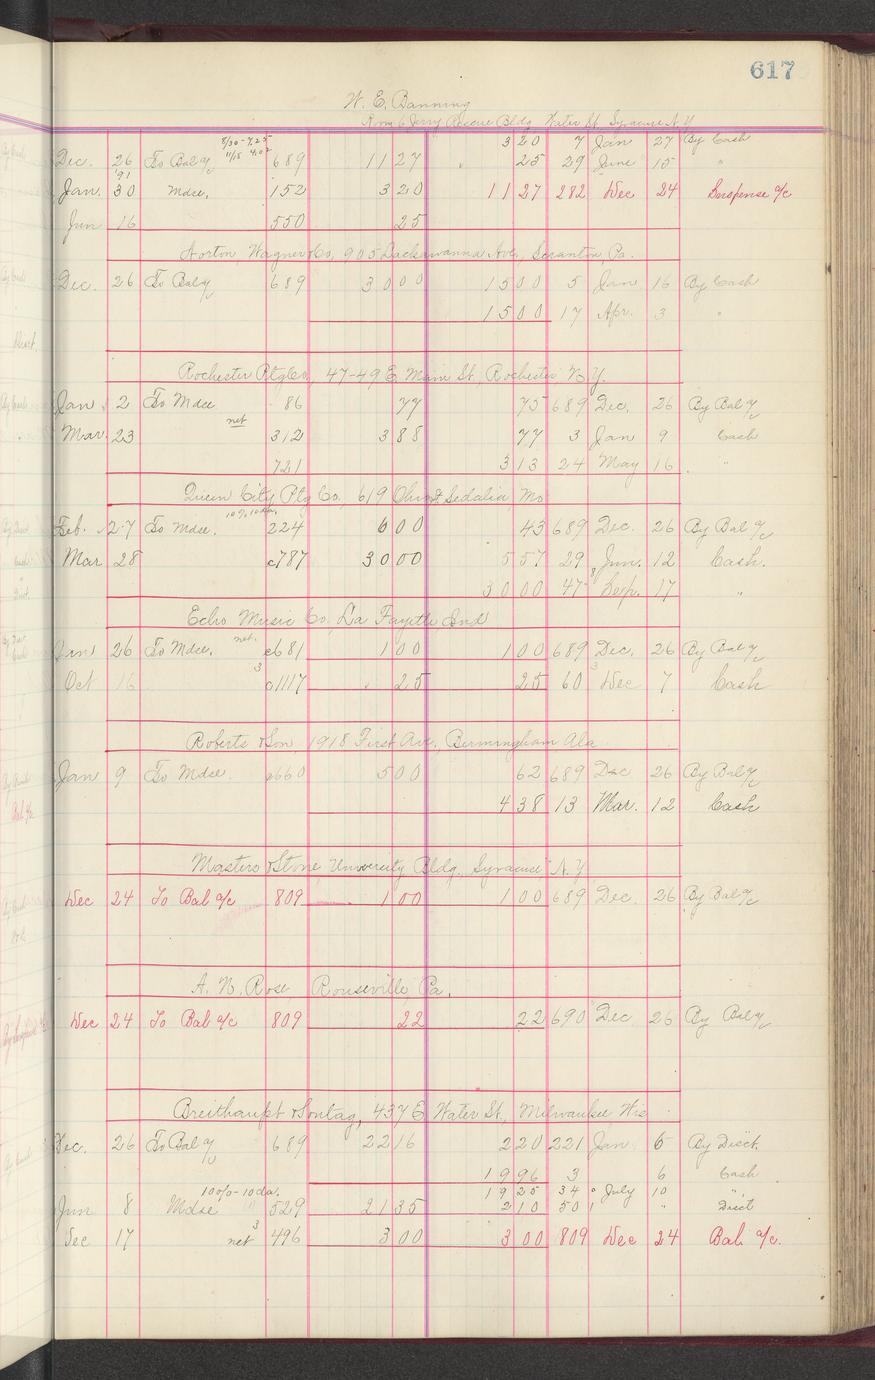 617
W. E. Banning
Room 6 Jerry Rescue Bldg Water St, Syracuse N.Y
8/30-7.25
11/18 4.02
3 20 7 Jan 27 By Cash
Dec. 26 To Bal a/c 689 11 27 25 29 June 15 "
'91
Jan. 30 Mdse. 152 3 20 11 27 282 Dec 24 Suspense a/c
Jun 16 550 25
Norton, Wagner & Co, 905 Lackawanna Ave., Scranton Pa.
Dec. 26 To Bal a/c 689 30 00 15 00 5 Jan 16 By Cash
15 00 17 Apr. 3 "
Rochester Ptg Co, 47-49 E. Main St., Rochester N.Y.
Jan 2 To Mdse 86 77 75 689 Dec. 26 By Bal a/c
net
Mar. 23 312 3 88 77 3 Jan 9 Cash
721 3 13 24 May 16 "
Queen City Ptg Co., 619 Ohio St Sedalia, Mo
10% 10 da.
Feb. 27 To Mdse. 224 6 00 43 689 Dec. 26 By Bal a/c
Mar 28 c787 30 00 5 57 29 Jun. 12 Cash.
30 00 47 Sep. 17 "
Echo Music Co, La Fayette, Ind
net.
Jan 26 To Mdse. c681 1 00 1 00 689 Dec. 26 By Bal a/c
3
Oct 16 c1117 25 25 60 Dec 7 Cash
Roberts & Son, 1918 First Ave, Birmingham Ala
Jan 9 To Mdse. c660 5 00 62 689 Dec 26 By Bal a/c
4 38 13 Mar. 12 Cash
Masters & Stone University Bldg., Syracuse N.Y
Dec 24 To Bal a/c 809 1 00 1 00 689 Dec. 26 By Bal a/c
A. N. Rose, Rouseville, Pa.
Dec 24 To Bal a/c 809 22 22 690 Dec 26 By Bal a/c
Breithaupt & Sontag, 437 E Water St., Milwaukee Wis
Dec. 26 To Bal a/c 689 22 16 2 20 221 Jan 6 By Disct.
19 96 3 6 Cash
10%-10 da. 19 25 34 July 10 "
Jun 8 Mdse " 529 21 35 2 10 50 " Disct
3
Dec 17 net 496 3 00 3 00 809 Dec 24 Bal a/c.